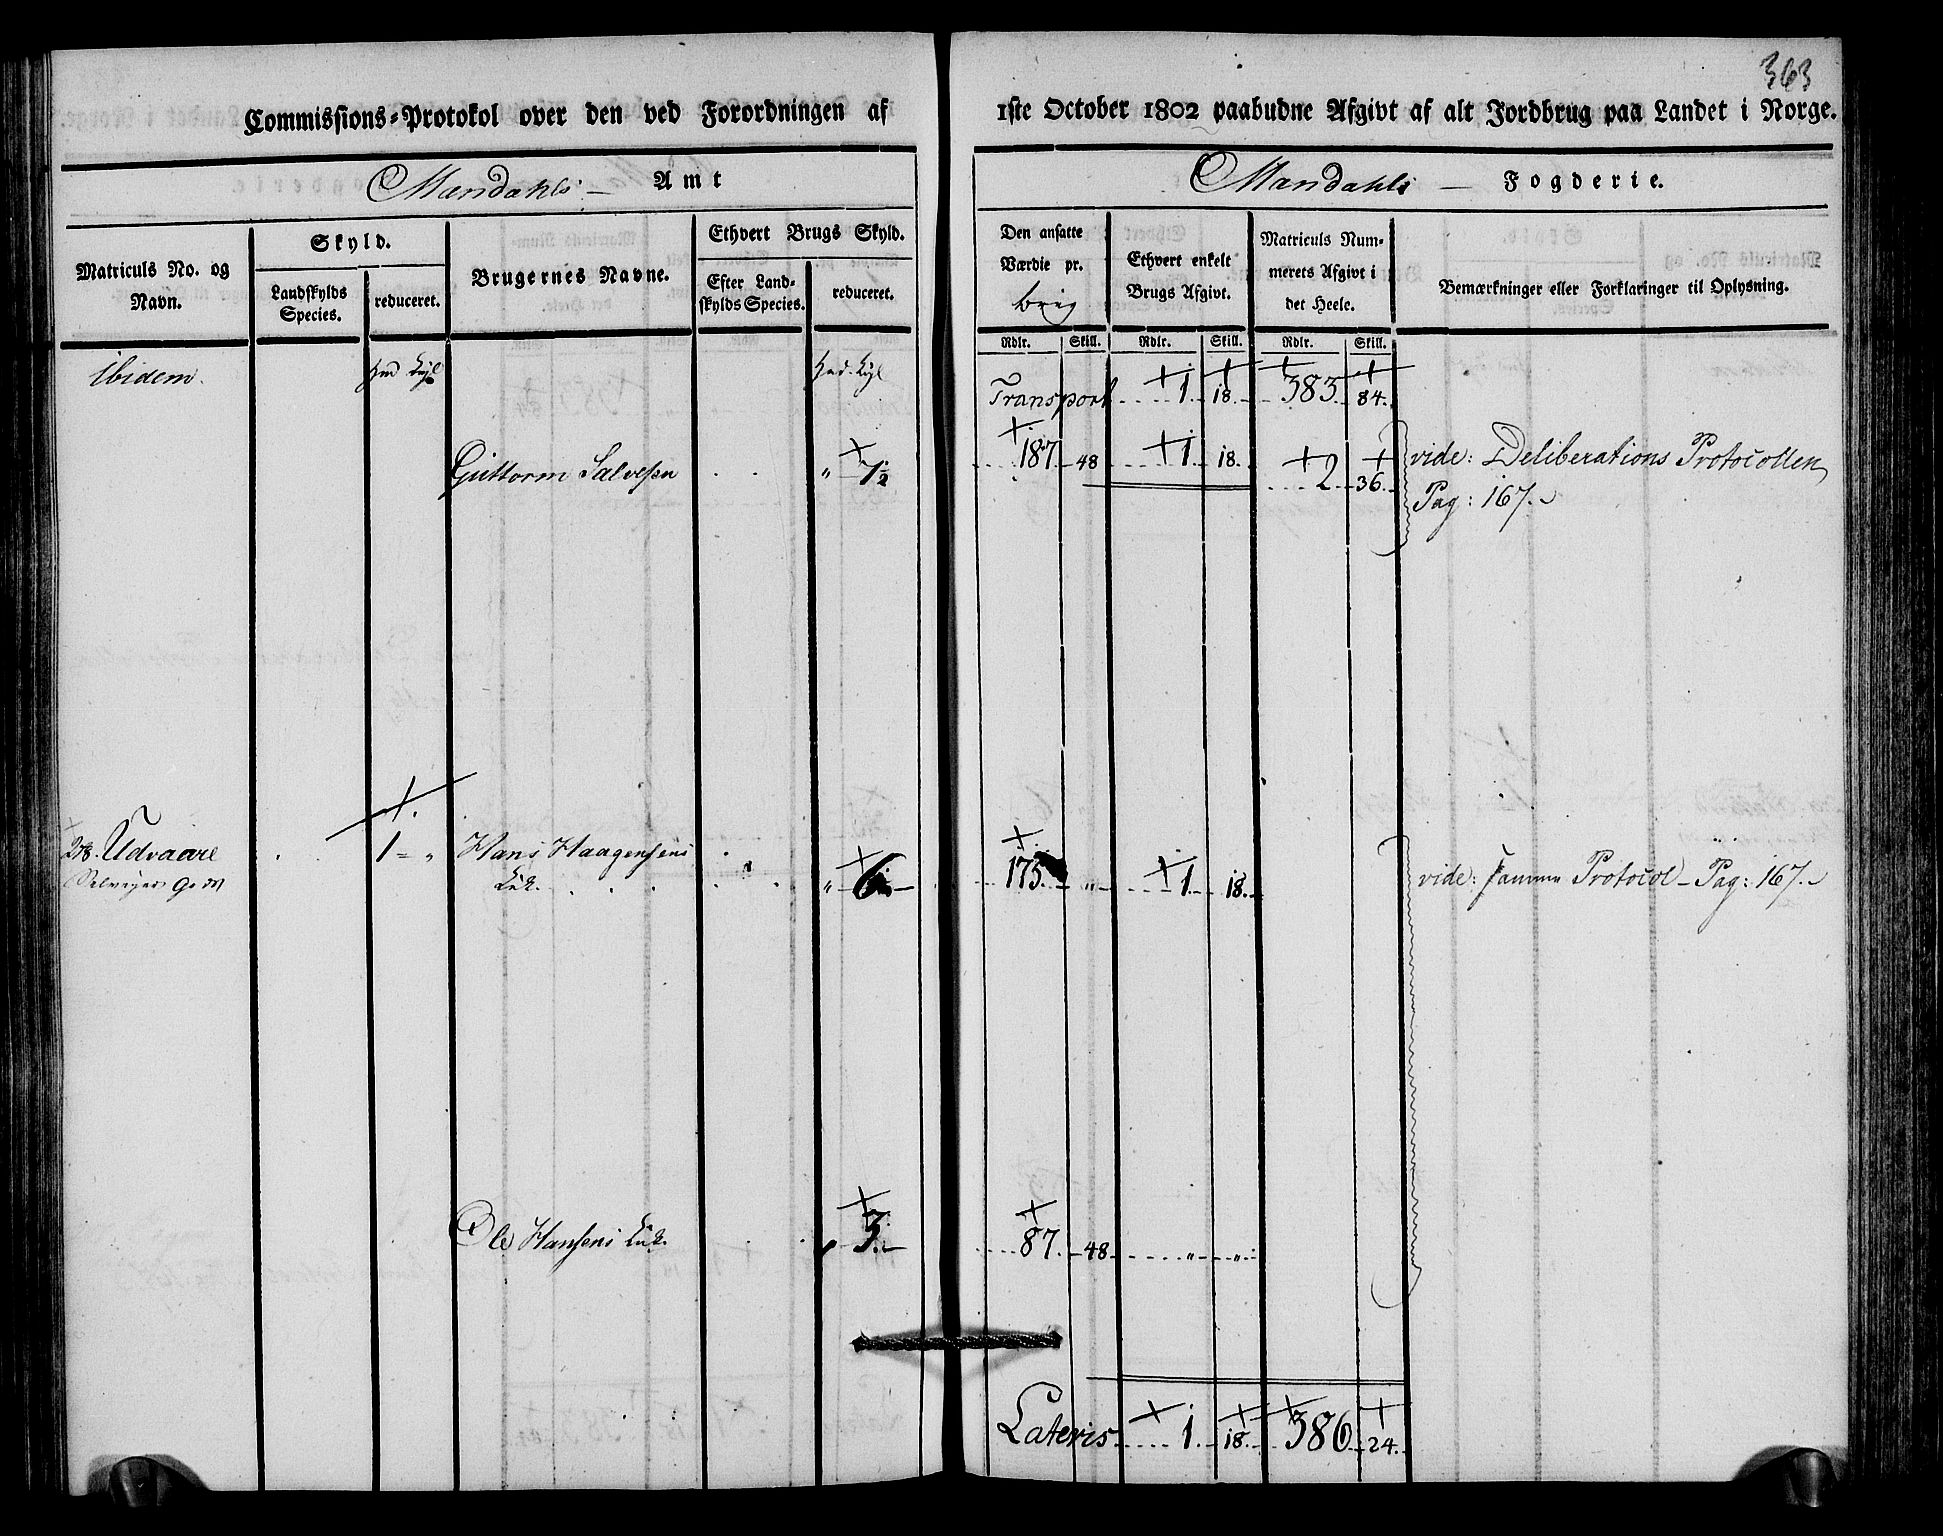 363
Commissions-Protokol over den ved Forordningen af 1ste October 1802 paabudne Afgivt af alt Jordbrug paa Landet i Norge.
Mandahls Amt
Mandahls Fogderie.
Matriculs No. og Navn.
Skyld.
Landskylds Species.
reduceret.
Brugernes Navne.
Ethvert Brugs Skyld.
Efter Landskylds Species.
reduceret.
Den ansatte Værdie pr. brug
Ethvert enkelt Brugs Afgivt.
Matriculs Nummerets Afgivt i det Heele.
Bemærkninger eller Forklaringer til Oplysning.
Rdlr. Skill. Rdlr. Skill. Rdlr. Skill.
Ibidem.
Transport 1 18. 383. 84.
Guttorm Salvesen " 7½ 187. 48 1. 18. 2. 36. vide: Deliberations Protocollen
Pag: 167.
Udvaare 1 = " Hans Haagensens
" 6 175. " 1. 18. vide: samme Protocol - Pag: 167.
Ole Hansens " 3. 87. 48 " "
Lateris 1. 18. 386. 24.